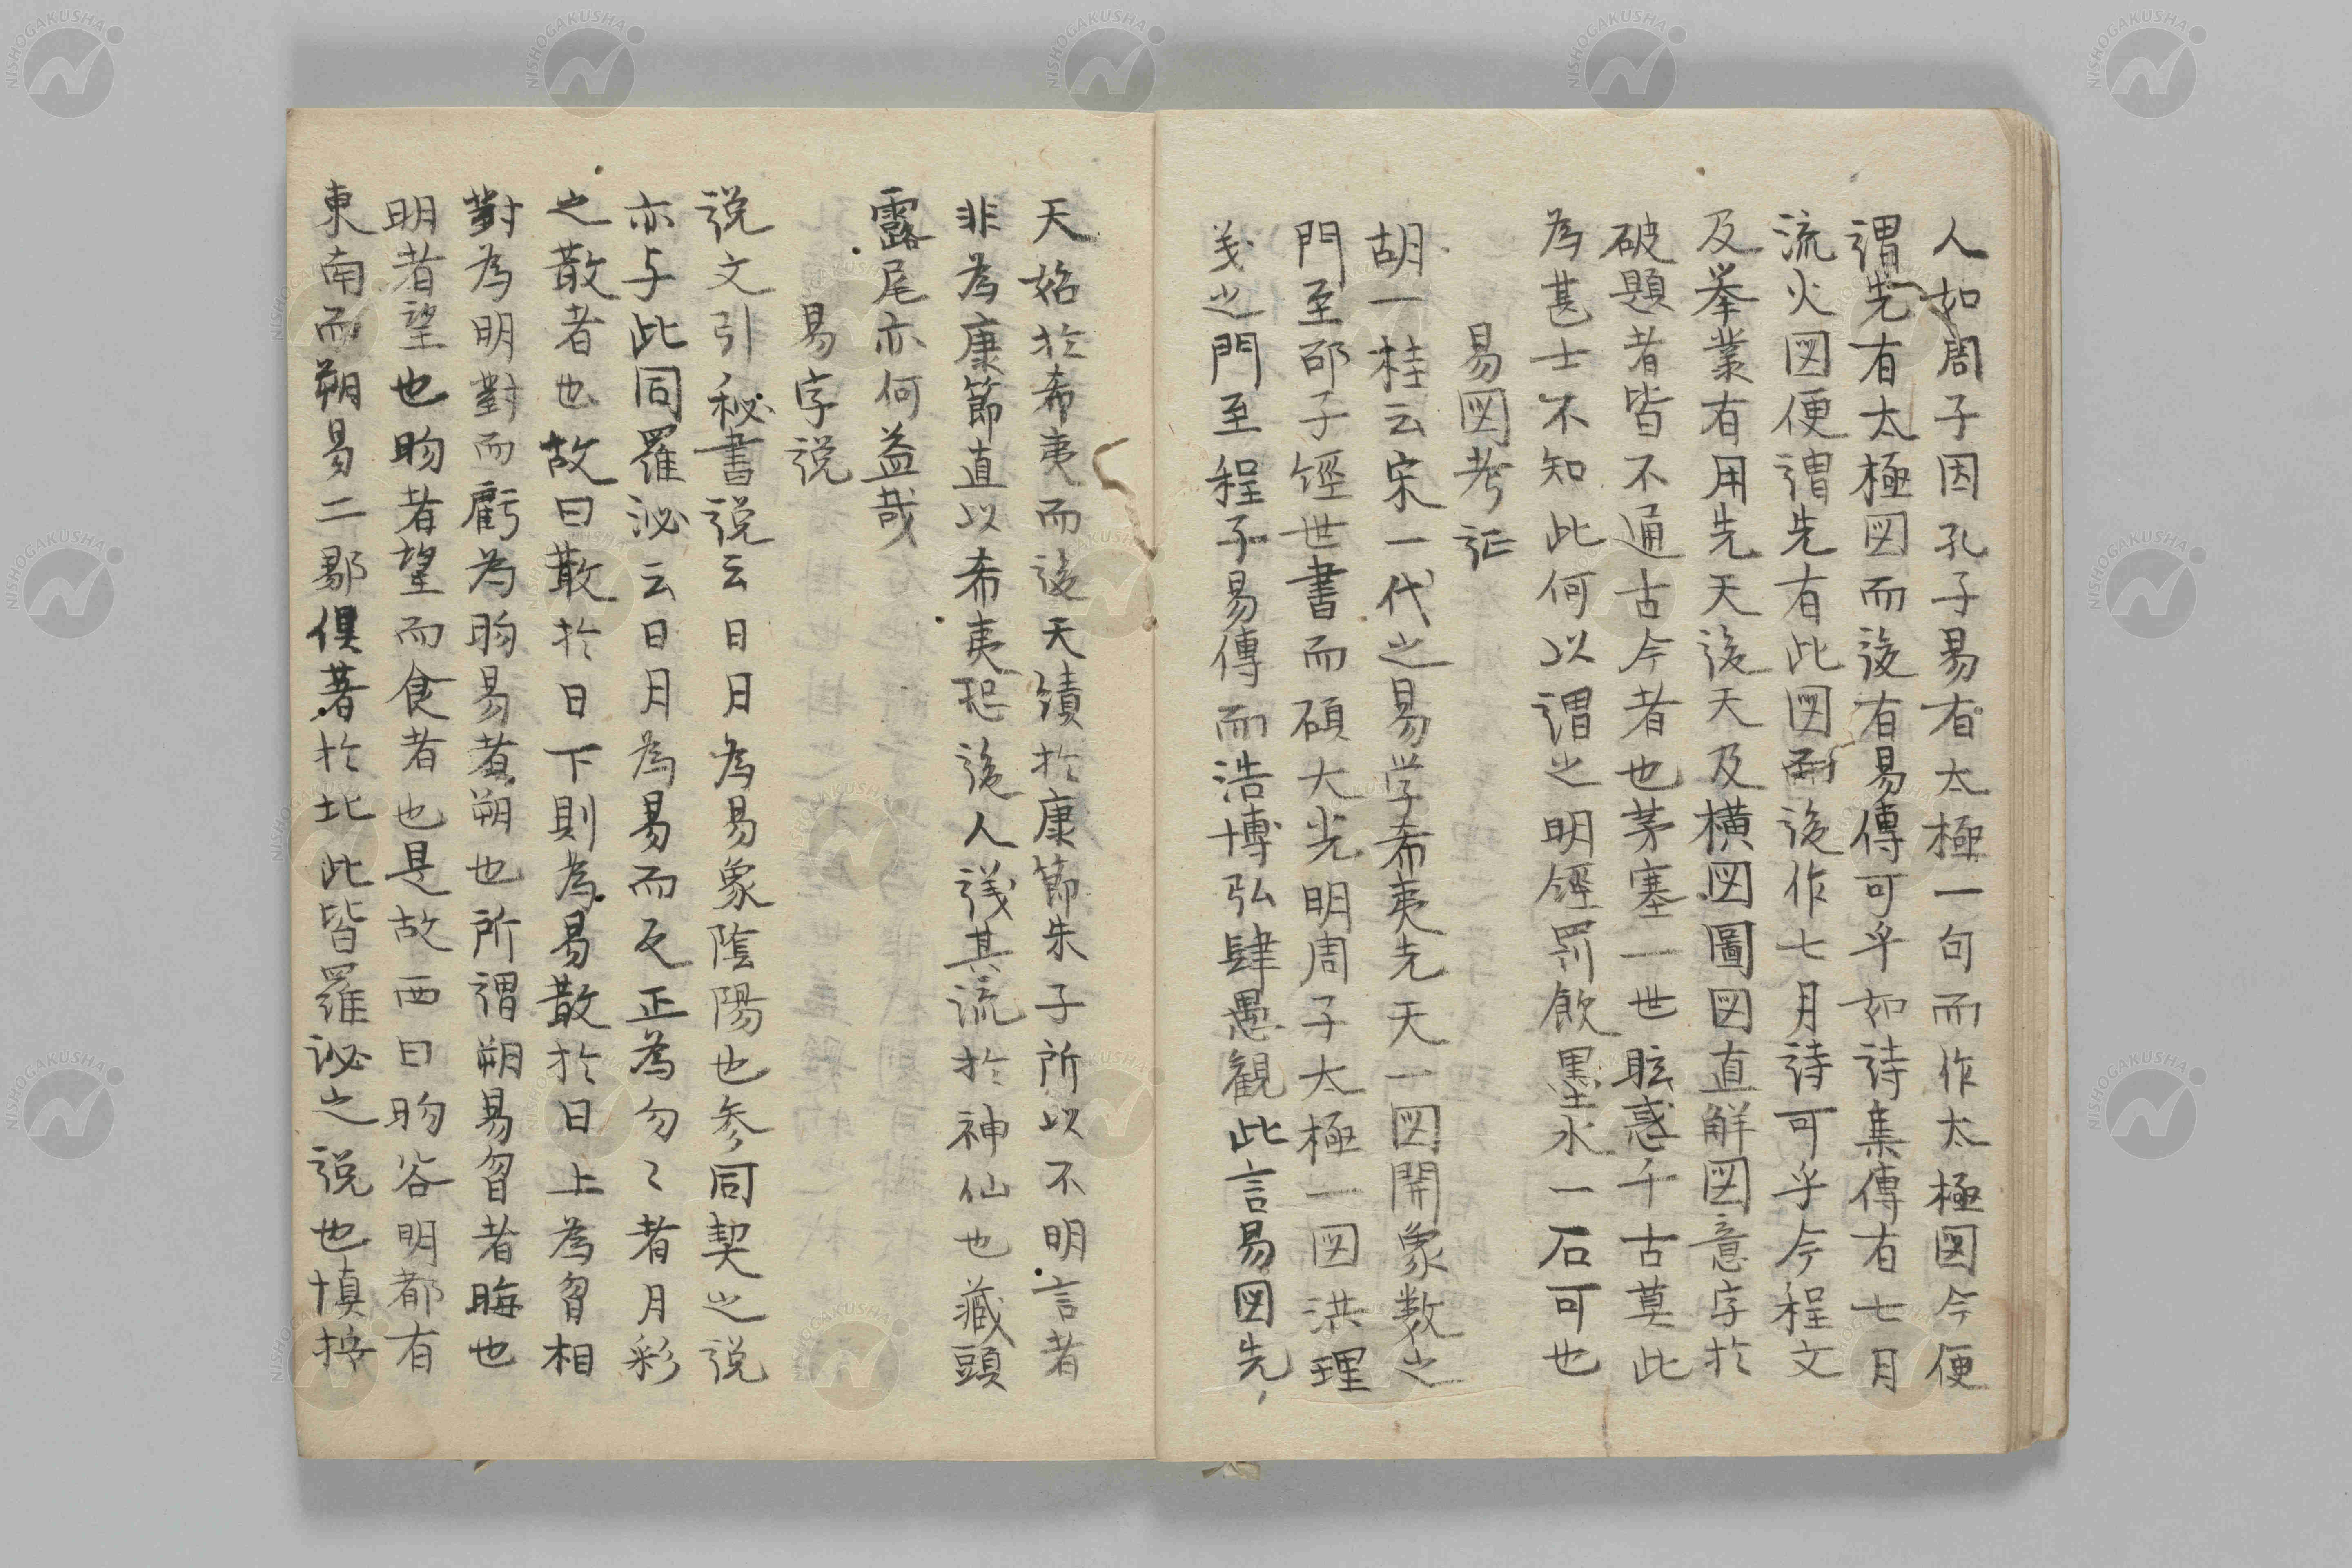 人如周子因孔子易有太極一句而作太極図今便
謂先有太極図而後有易傳可乎如詩集傳有七月
流火図便謂先有此図而後作七月詩可乎今程文
及挙業有用先天後天及横図圖図直解図意字於
破題者皆不通古今者也茅塞一世眩惑千古莫此
為甚士不知此何以謂之明經罰飲墨水一石可也
易図考証
胡一桂云宋一代之易学希夷先天一図開象数之
門至邵子經世書而碩大光明周子太極一図洪理
義之門至程子易傳而浩博弘肆愚観此言易図先
天始於希夷而後天續於康節朱子所以不明言者
非為康節直以希夷恐後人議其流於神仙也藏頭
露尾亦何益哉
易字説
説文引秘書説云日月為易象陰陽也参同契之説
亦与此同羅泌云日月為易而反正為勿〻者月彩
之散者也故曰散於日下則為易散於日上為曶相
對為明對而虧為昒易者朔也所謂朔易曶者晦也
明者望也昒者望而食者也是故西曰昒谷明都有
東南而朔易二鄹俱著於北此皆羅泌之説也慎按
NISHOGAKUSHA